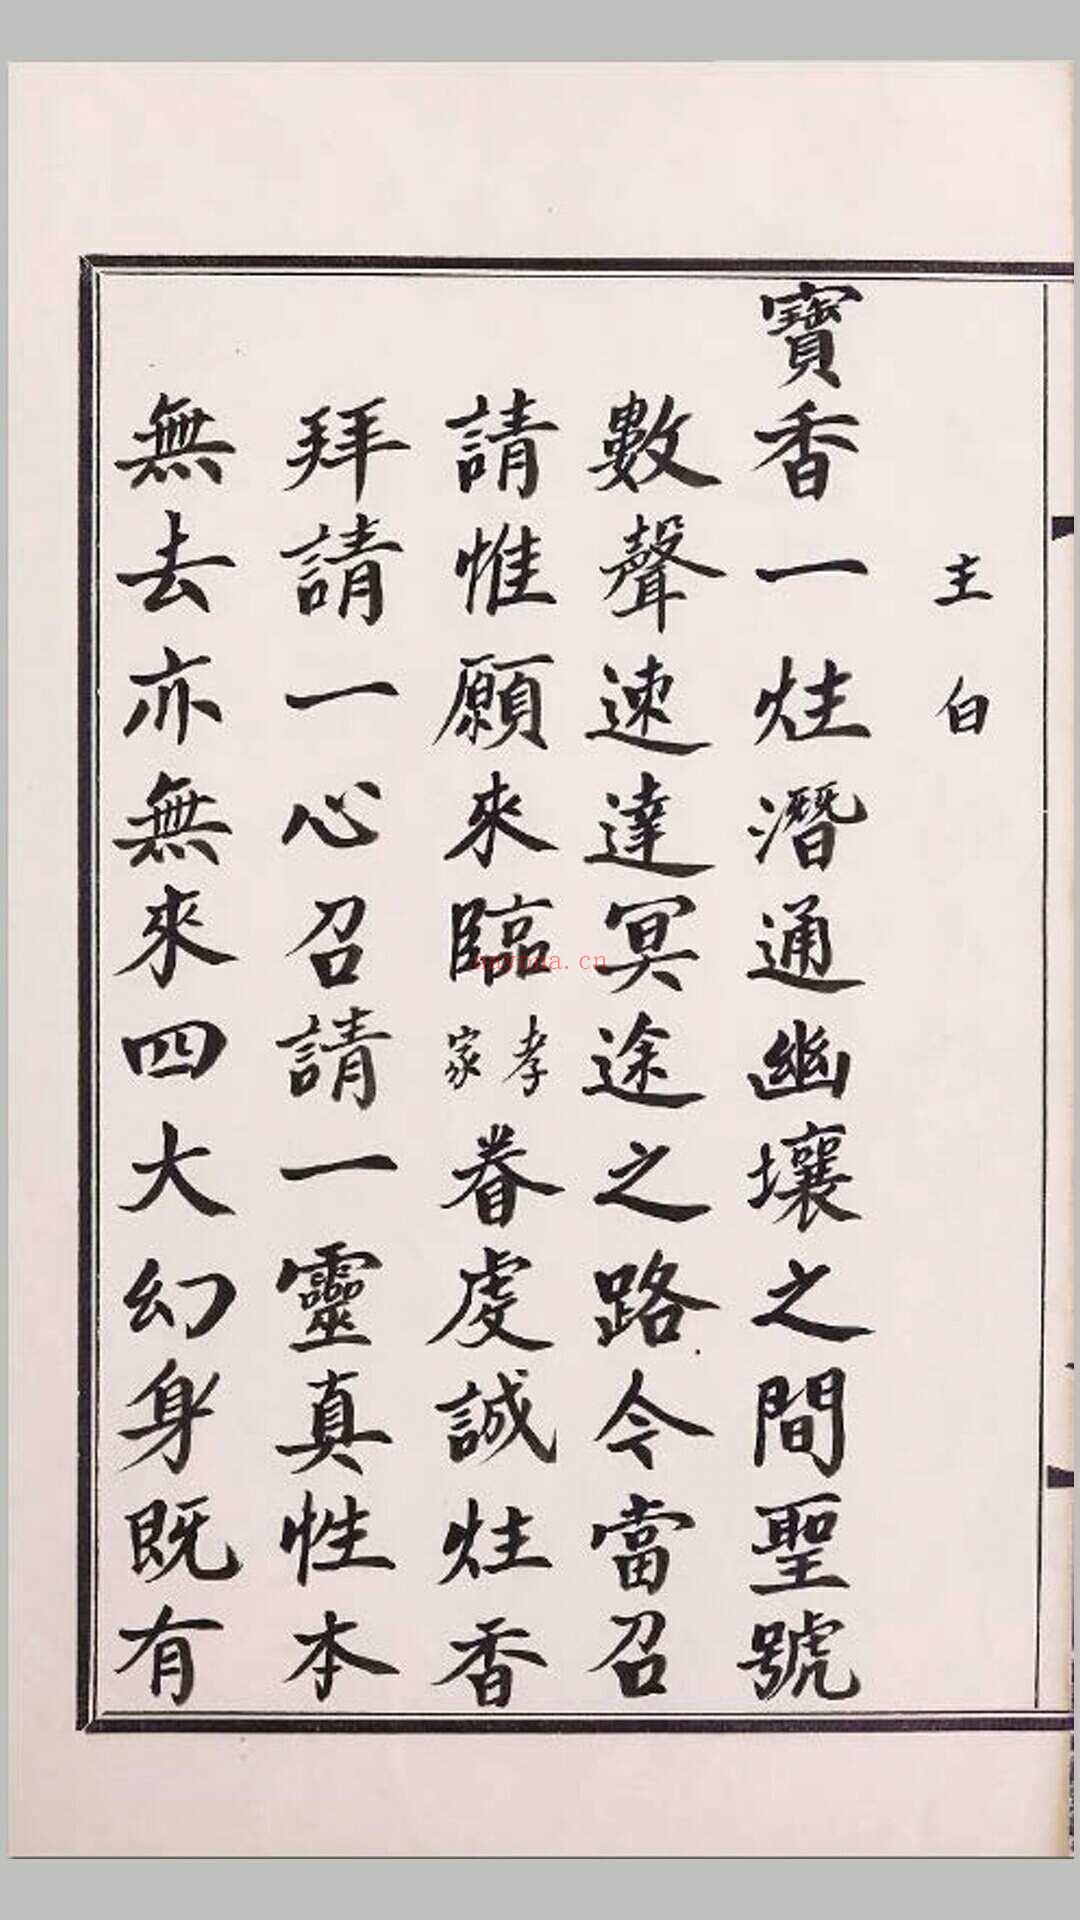 主白
寶香一炷潛通幽壤之間聖號
數聲速達冥途之路今當召
請惟願來臨孝家眷虔誠炷香
拜請一心召請一靈真性本
無去亦無來四大幻身既有